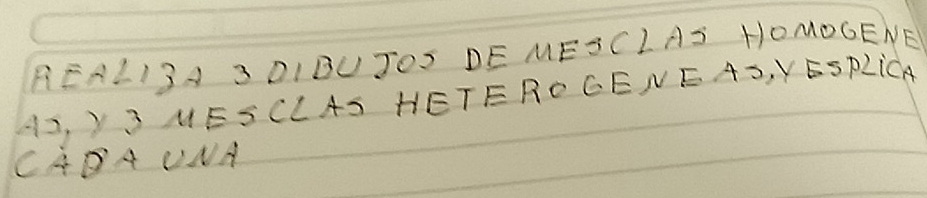 REALIZA 3 DIBUJOS DE MESCLAS HOMOGENE
AS, Y 3 MESCLAS HETEROGENEAS, Y ESPLICA
CADA UNA